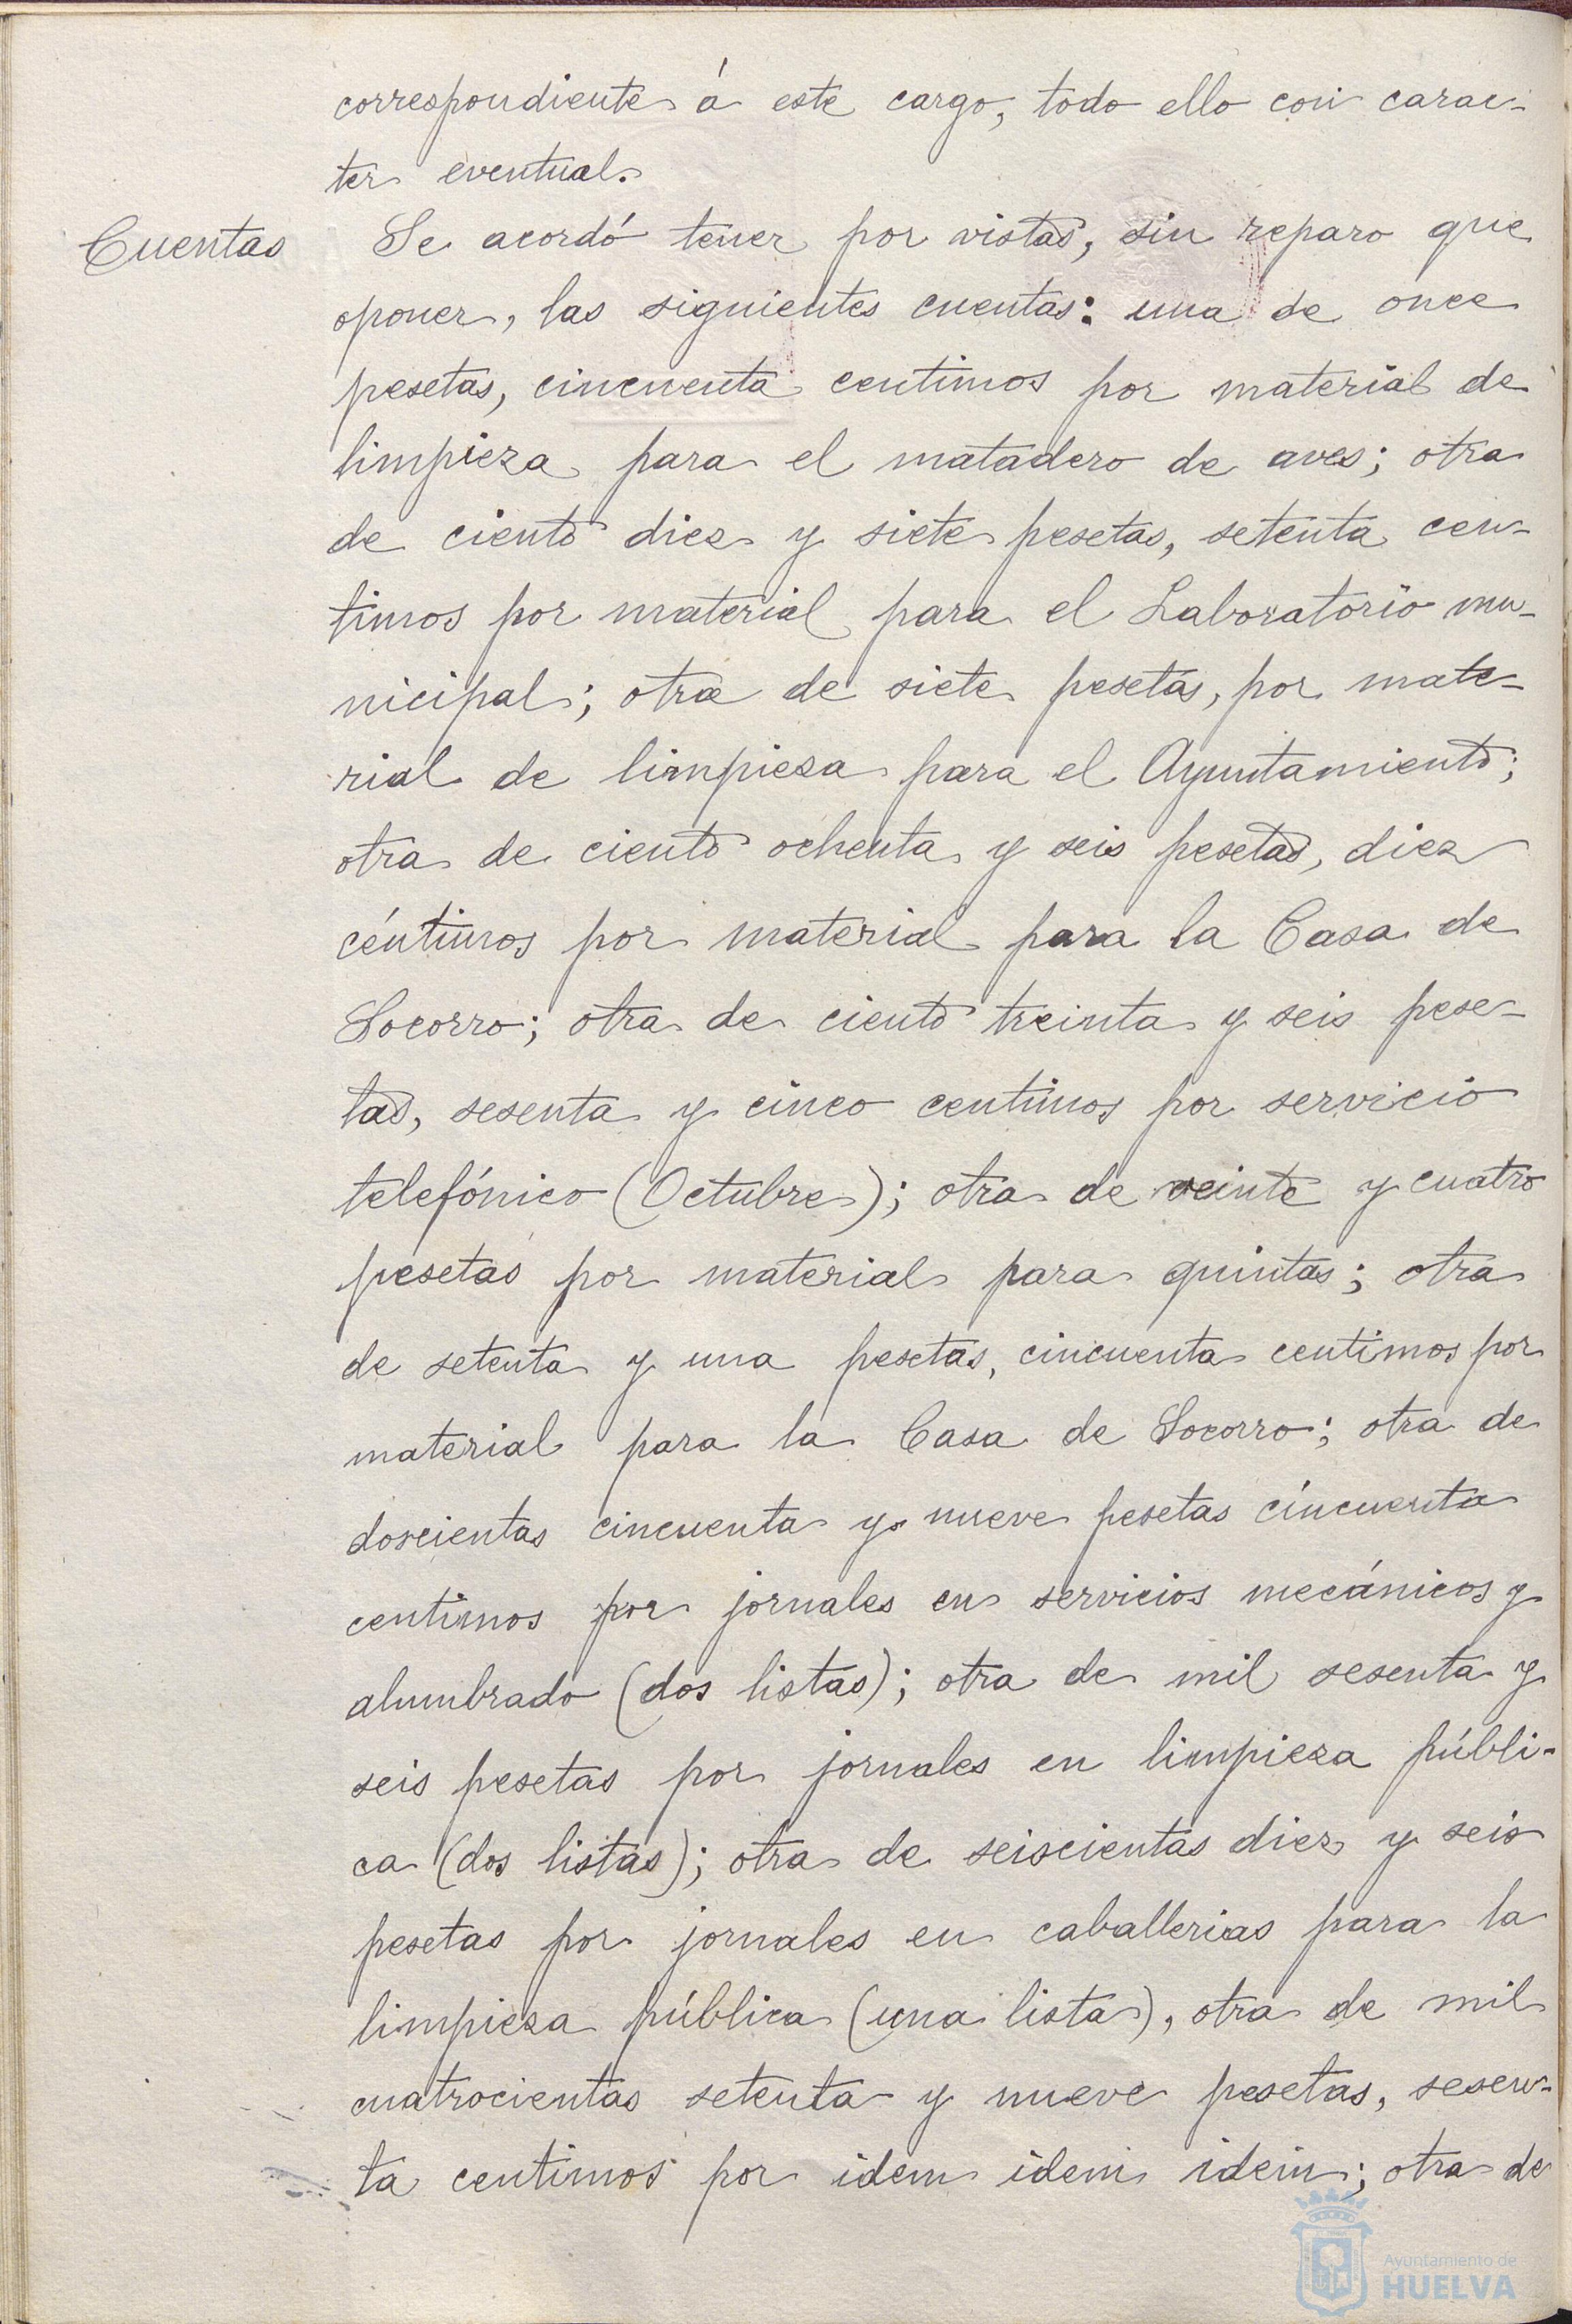 correspondiente á este cargo, todo ello con carac-
ter eventual.
Cuentas Se acordó tener por vistas, sin reparo que
oponer, las siguientes cuentas: una de once
pesetas, cincuenta centimos por material de
limpieza para el matadero de aves; otra
de ciento diez y siete pesetas, setenta cen-
timos por material para el Laboratorio mu-
nicipal; otra de siete pesetas, por mate-
rial de limpieza para el Ayuntamiento;
otra de ciento ochenta y seis pesetas, diez
céntimos por material para la Casa de
Socorro; otra de ciento treinta y seis pese-
tas, sesenta y cinco centimos por servicio
telefónico (Octubre); otra de veinte y cuatro
pesetas por material para quintas; otra
de setenta y una pesetas, cincuenta centimos por
material para la Casa de Socorro; otra de
doscientas cincuenta y nueve pesetas cincuenta
centimos por jornales en servicios mecánicos y
alumbrado (dos listas); otra de mil sesenta y
seis pesetas por jornales en limpieza públi-
ca (dos listas); otra de seiscientas diez y seis
pesetas por jornales en caballerias para la
limpieza pública (una lista), otra de mil
cuatrocientas setenta y nueve pesetas, sesen-
ta centimos por idem idem idem; otra de
Ayuntamiento de
HUELVA